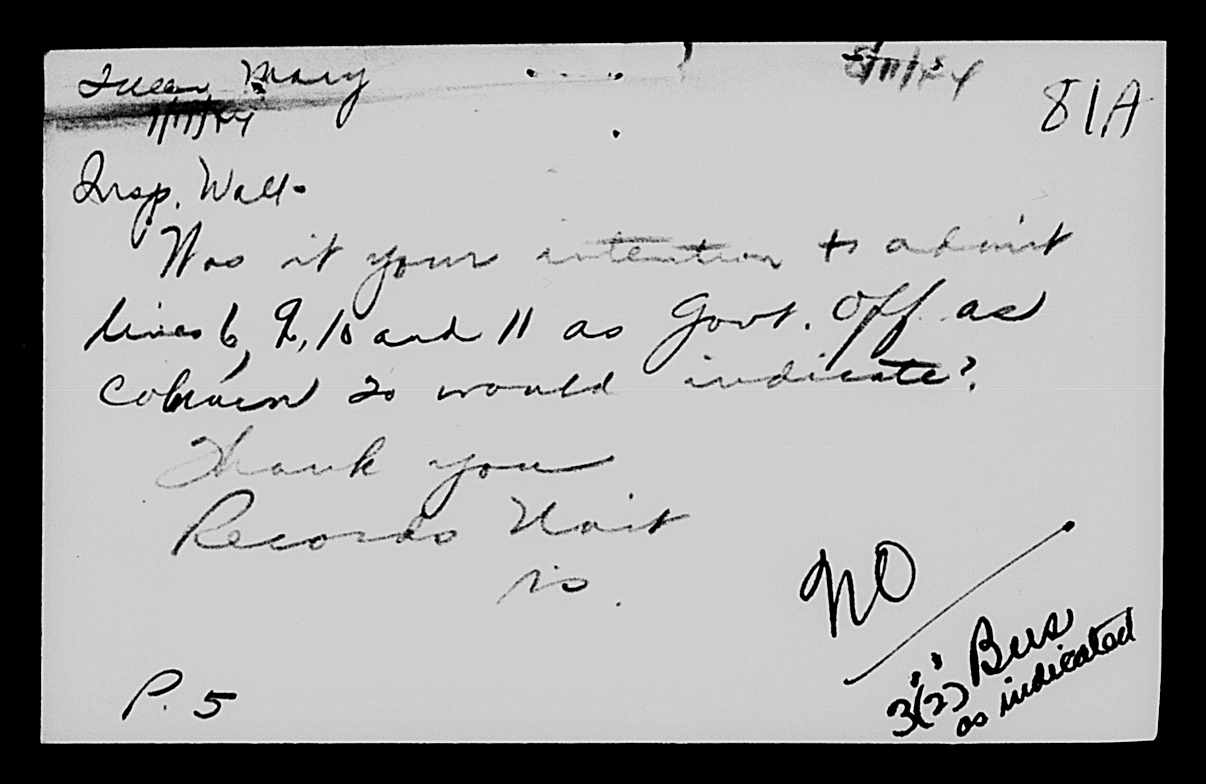 Queen Mary
81A
Insp. Wall-
Was it your intention to admit
lines 6, 9, 10 and 11 as Govt. Off as
Column 20 would indicate?
Thank you
Records Unit
P. 5
NO
3(2) Bus
as indicated